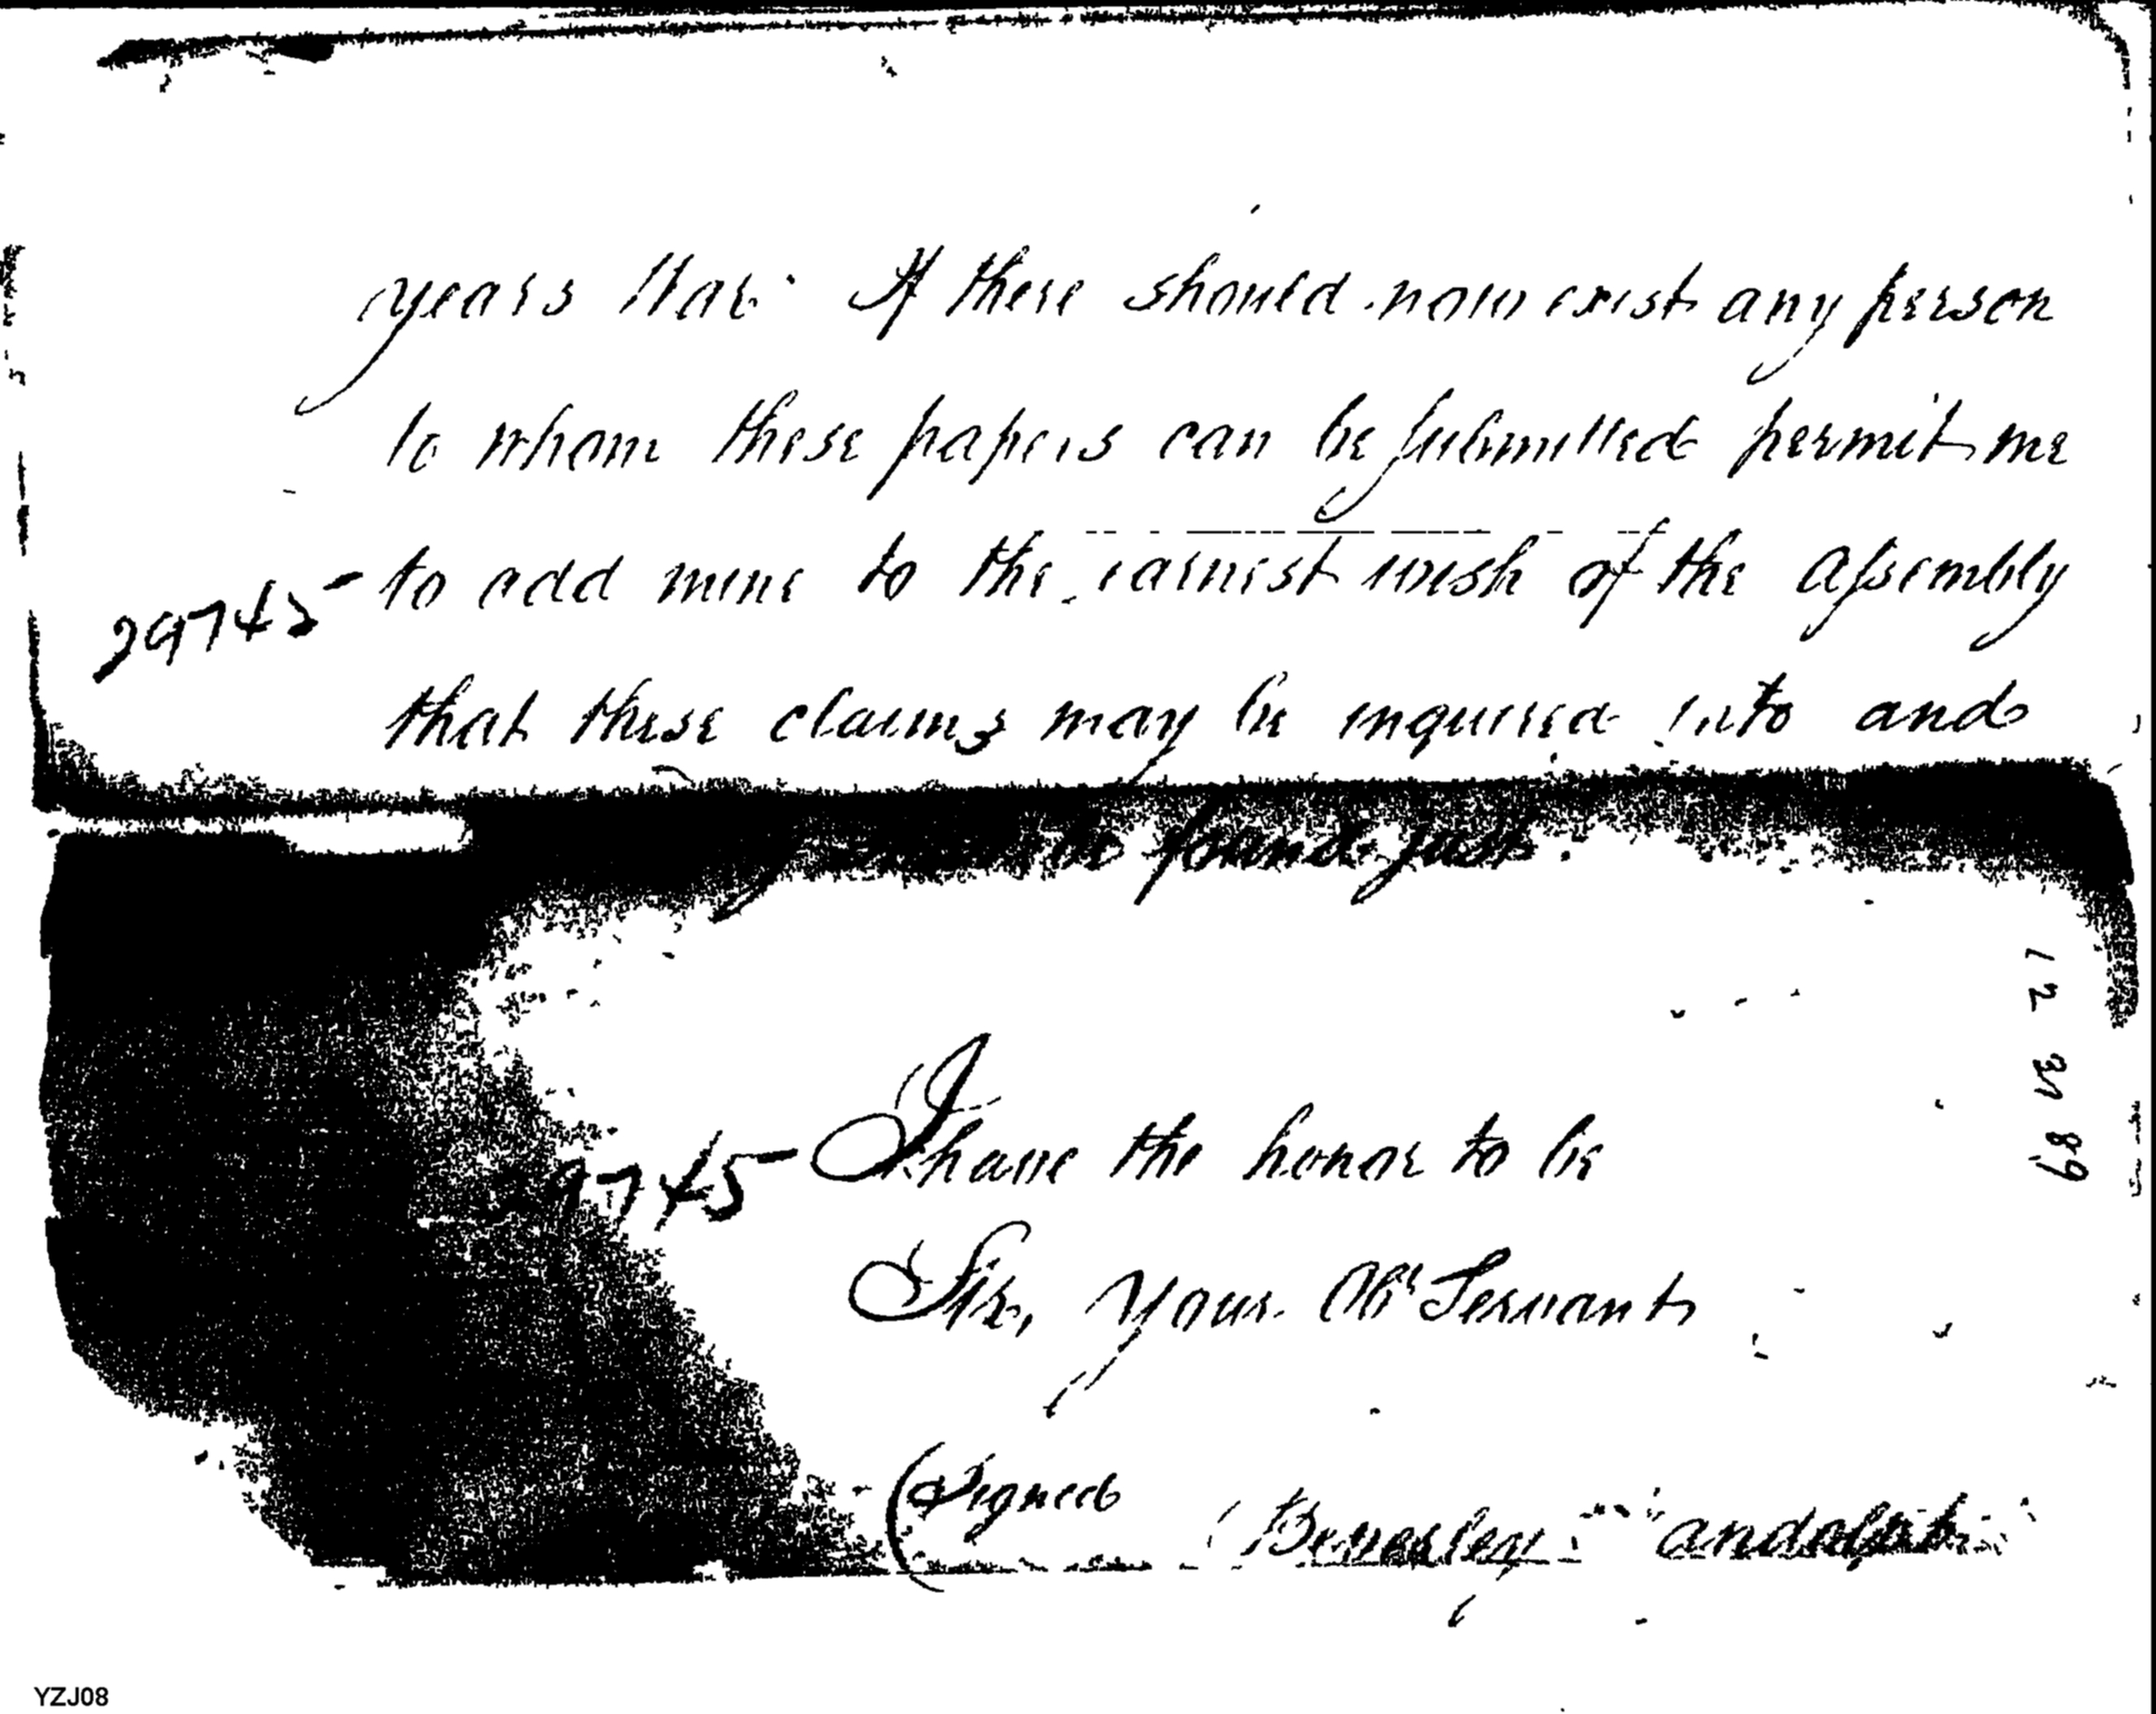 years If there should now exist any person
to whom these papers can be submitted permit me
29745 to add mine to the earnest wish of the Assembly
that these claims may be inquired into and
be found just.
12 30 89
9745 I have the honor to be
Sir, Your Ob Servant
(Signed Beverley andolph
YZJ08